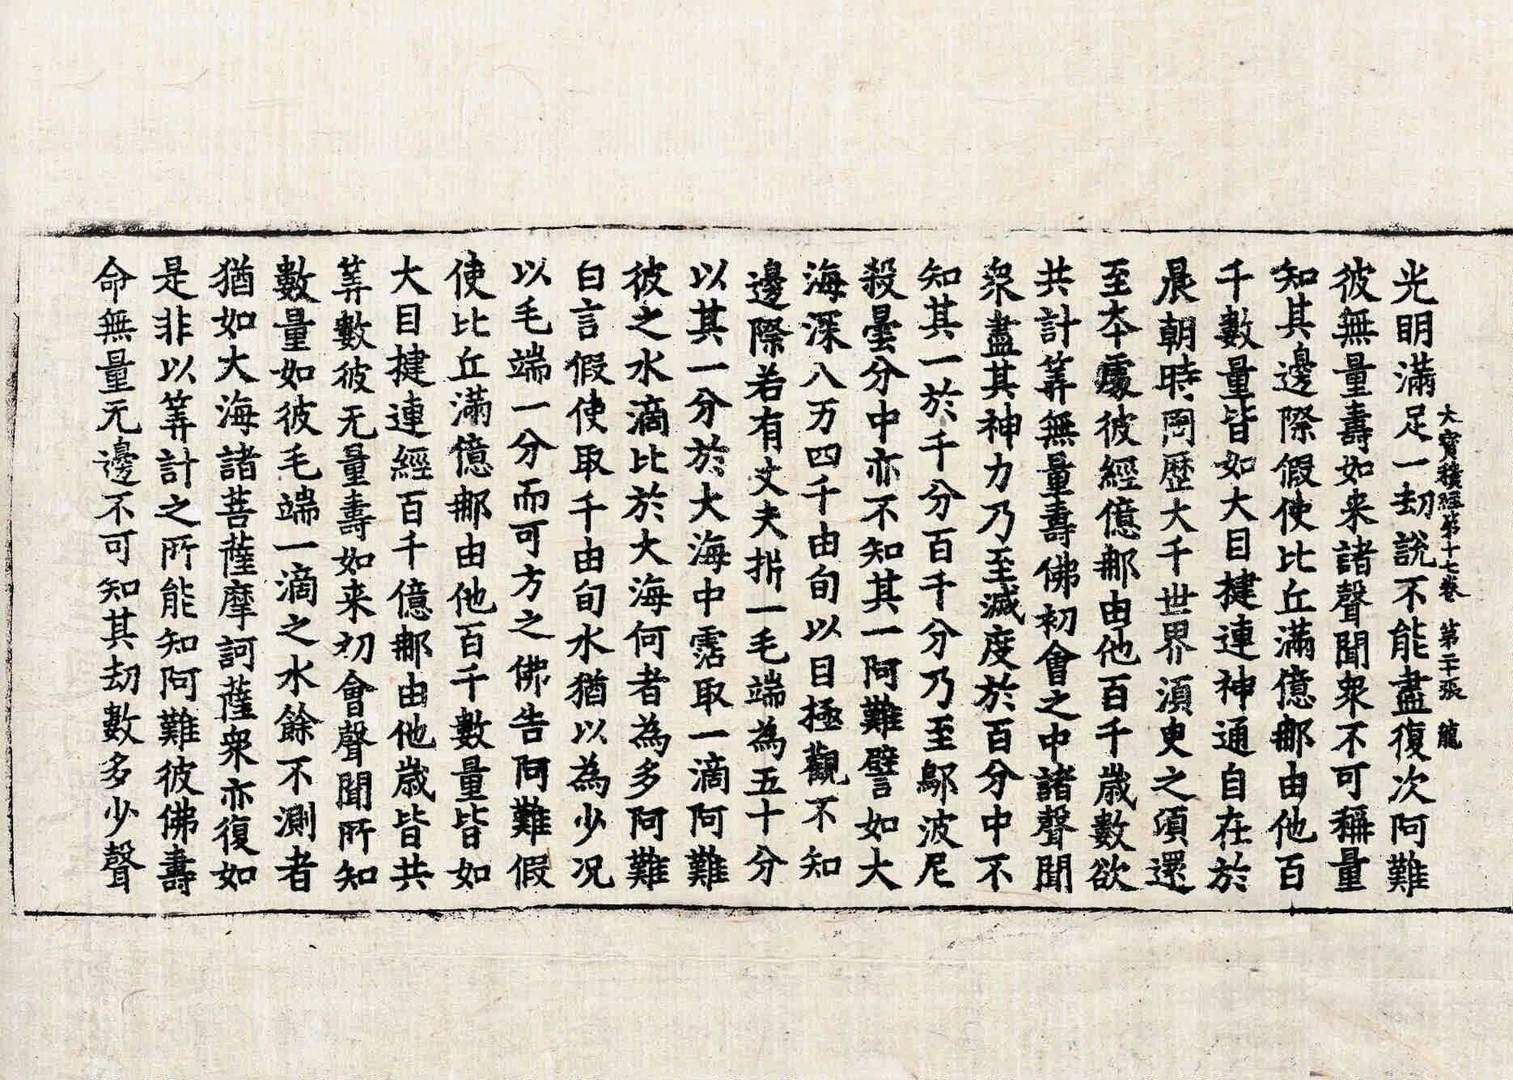 大寶積經第十七卷 第二十張 龍
光明滿足一劫說不能盡復次阿難
彼無量壽如来諸聲聞衆不可稱量
知其邊際假使比丘滿億那由他百
千數量皆如大目揵連神通自在於
晨朝時周歷大千世界須臾之頃還
至本處彼經億那由他百千歲數欲
共計筭無量壽佛初會之中諸聲聞
衆盡其神力乃至滅度於百分中不
知其一於千分百千分乃至鄔波尼
殺曇分中亦不知其一阿難譬如大
海深八万四千由旬以目極觀不知
邊際若有丈夫析一毛端為五十分
以其一分於大海中霑取一滴阿難
彼之水滴比於大海何者為多阿難
白言假使取千由旬水猶以為少况
以毛端一分而可方之佛告阿難假
使比丘滿億那由他百千數量皆如
大目揵連經百千億那由他歲皆共
筭數彼无量壽如来初會聲聞所知
數量如彼毛端一滴之水餘不測者
猶如大海諸菩薩摩訶薩衆亦復如
是非以筭計之所能知阿難彼佛壽
命無量无邊不可知其劫數多少聲